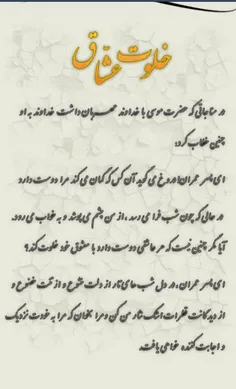 خلوت عشاق
در مناجاتی که حضرت موسی با خداوند مهربان داشت خداوند به او
چنین خطاب کرد:
ای پسر عمران! دروغ می گوید آن کس که گمان می کند مرا دوست دارد
در حالی که چون شب فرا می رسد، از من چشم می پوشد و به خواب می رود.
آیا مگر چنین نیست که هر عاشقی دوست دارد با معشوق خود خلوت کند؟
ای پسر عمران، در دل شب های تار از دلت خشوع و از تنت خضوع و
از دیدگانت قطرات اشک نثار من کن و مرا بخوان که مرا به خودت نزدیک
و اجابت کننده خواهی یافت.